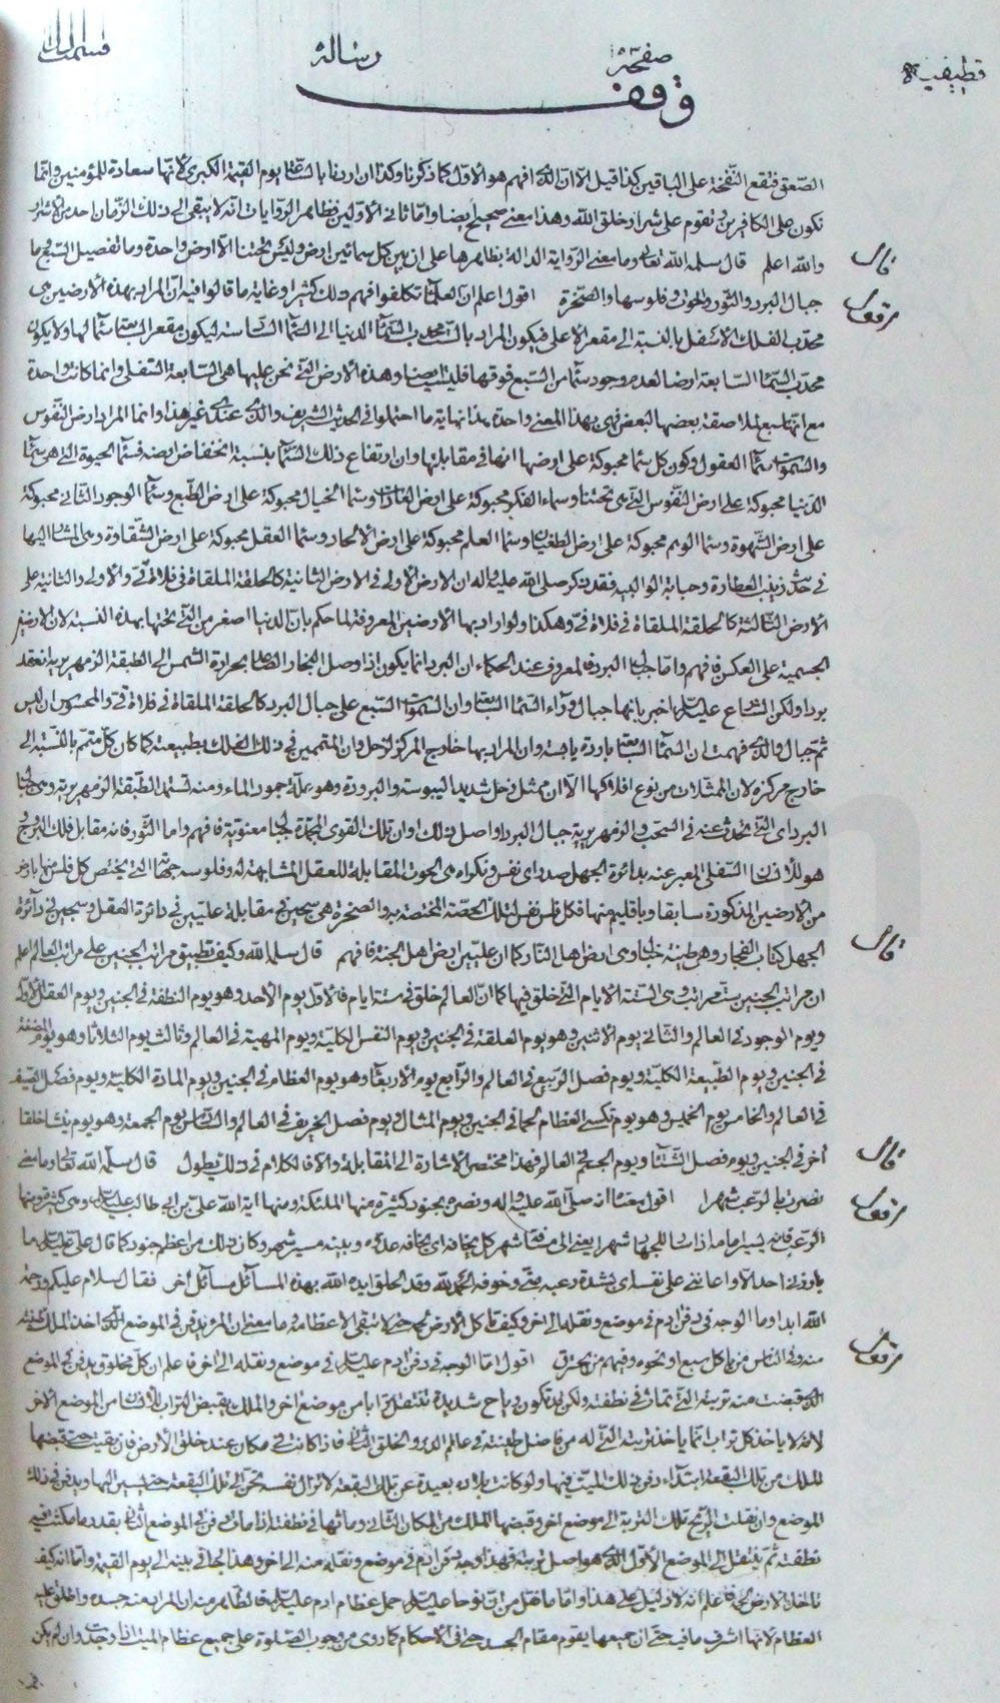 قطيفية
صفحة
رسالة
وقف
الصعق فتقع النفخة على الباقين كذا قيل الا ان الذي افهم هو الاول كما ذكرنا وكذا ان اردنا بالساعة يوم القيمة الكبرى لانها سعادة للمؤمنين وانما
تكون على الكافرين وتقوم على شرار خلق الله وهذا معنى صحيح ايضا واما ثاني الاولين فظاهر الروايات انه لا يبقى الى ذلك الزمان احد من الاشرار
والله اعلم قال سلمه الله تعالى وما معنى الرواية الدالة بظاهرها على ان بين كل سمائين ارض وليس تحتنا الا ارض واحدة وما تفصيل السبع وما
قال
جبال البرد والثور والحوت وفلوسها والصخرة اقول اعلم ان العلماء تكلفوا فهم ذلك كثيرا وغاية ما قالوا فيه ان المراد بهذه الارضين هي
محدب الفلك الاسفل بالنسبة الى مقعر الاعلى فيكون المراد بال محدب السماء الدنيا الى السماء السادسة ليكون مقعر السابعة سماء لها ولا يكون
محدب السماء السابعة ارضا لعدم وجود سماء من السبع فوقها فليست ارضا وهذه الارض التي نحن عليها هي السابعة السفلى وانما كانت واحدة
مع انها سبع لملاصقة بعضها لبعض فهي بهذا المعنى واحدة هذا نهاية ما احتملوا في الحديث الشريف والذي عندي غير هذا وانما المراد ارض النفوس
والسموات سماء العقول وكون كل سماء محبوكة على ارضها انها في مقابلتها وان ارتفاع ذلك السماء بنسبة انخفاض ارضه فسماء الحيوة التي هي سماء
الدنيا محبوكة على ارض النفوس التي هي تحتنا وسماء الفكر محبوكة على ارض العادات وسماء الخيال محبوكة على ارض الطبع وسماء الوجود الثاني محبوكة
على ارض الشهوة وسماء الوهم محبوكة على ارض الطغيان وسماء العلم محبوكة على ارض الالحاد وسماء العقل محبوكة على ارض الشقاوة وهي المشار اليها
في حديث زينب العطارة وحبابة الوالبية فقد ذكر صلى الله عليه واله ان الارض الاولى في الارض الثانية كالحلقة الملقاة في فلاة قي والاولى والثانية على
الارض الثالثة كالحلقة الملقاة في فلاة قي وهكذا ولو اراد بها الارضين المعروفة لما حكم بان الدنيا اصغر من التي تحتها بهذه النسبة لان الارضين
الجسمية على العكس فافهم واما جبال البرد فالمعروف عند الحكماء ان البرد انما يكون اذا وصل البخار الصاعد بحرارة الشمس الى الطبقة الزمهريرية انعقد
بردا ولكن الشارع عليه السلام اخبر بانها جبال وراء السماء السابعة وان السموات السبع على جبال البرد كالحلقة الملقاة في فلاة قي والمحسوس ان ليس
ثم جبال والذي فهمت ان السماء السابعة باردة يابسة وان المراد بها خارج المركز لزحل وان المتممين في ذلك الفلك بطبيعته كما كان كل متمم بالنسبة الى
خارج مركزه لان الممثلات من نوع افلاكها الا ان ممثل زحل شديد اليبوسة والبرودة وهو علة جمود الماء ومنه تستمد الطبقة الزمهريرية وهي جبال
البرد اي التي تحدث عنه في السحب والزمهريرية جبال البرد واصل ذلك وان تلك القوى المجمدة جبال معنوية فافهم واما الثور فانه مقابل فلك البروج
من الارضين المذكورة سابقا وباقليم منها فكل فلس نفس لتلك الحصة المختصة به والصخرة هي سجين في مقابلة عليين في دائرة العقل وسجين في دائرة
الجهل كتاب الفجار وهي طينة خبال وهي ارض اهل النار كما ان عليين ارض اهل الجنة فافهم قال سلمه الله وكيف تطبيق مراتب الجنين على مراتب العالم اعلم
قال
ان مراتب الجنين ست مراتب وهي الستة الايام التي خلق فيها كما ان العالم خلق في ستة ايام فالاول يوم الاحد وهو يوم النطفة في الجنين ويوم العقل
ويوم الوجود في العالم والثاني يوم الاثنين وهو يوم العلقة في الجنين ويوم النفس الكلية ويوم المهية في العالم وثالث يوم الثلاثا وهو يوم المضغة
في الجنين ويوم الطبيعة الكلية ويوم فصل الربيع في العالم والرابع يوم الاربعاء وهو يوم العظام في الجنين ويوم المادة الكلية ويوم فصل الصيف
في العالم والخامس يوم الخميس وهو يوم تكسى العظام لحما في الجنين ويوم المثال ويوم فصل الخريف في العالم والسادس يوم الجمعة وهو يوم ينشا خلقا
آخر في الجنين ويوم فصل الشتاء ويوم الجسم في العالم فهذا مختصر الاشارة الى المقابلة والا فالكلام في ذلك يطول قال سلمه الله تعالى وما معنى
قال
نصرت بالرعب شهرا اقول معناه انه صلى الله عليه واله ونصره بجنود كثيرة منها الملئكة ومنها اية الله علي بن ابي طالب عليه السلام وهي كثيرة ومنها
الرعب فانه يسير امامه اذا سار للجهاد شهرا يعني الى مسافة شهر كل يخافه اي يخافه عدوه وبينه مسير شهر وكان ذلك من اعظم جنوده كما قال علي عليه السلام ما
بارزني احد الا واعانني على نفسه اي بشدة رعبه مني وخوفه الحمد لله وقد الحق ايده الله بهذه المسائل مسائل أخر فقال سلام عليكم ورحمة
الله ابدا وما الوجه في دفن ادم في موضع ونقله الى اخر وكيف تاكل الارض لحمه حتى لا تبقى الا عظامه وما معنى ان المرء يدفن في الموضع الذي اخذ الملك طينته
منه وفي الناس من ياكل سبع او نحوه وفيهم من يحترق اقول اما الوجه في دفن ادم عليه السلام في موضع ونقله الى اخر فاعلم ان كل مخلوق يدفن في الموضع
الذي قبضت منه تربته التي تماث في نطفته ولكن قد تكون رياح شديدة تنتقل ترابا من موضع اخر والملك يقبض التراب للانسان من الموضع الاخر
لانه لا ياخذ كل تراب انما ياخذ تربته التي له من فاضل طينته في عالم الذر والخلق الثاني فاذا كانت في مكان عند خلق الارض فان بقيت حتى قبضها
الملك من تلك البقعة ابتداء دفن ذلك الميت فيها ولو كانت بلاده بعيدة عن تلك البقعة لا تزال نفسه تحن الى تلك البقعة حتى يسير اليها ويدفن في ذلك
الموضع وان نقلت الريح تلك التربة الى موضع اخر وقبضها الملك من المكان الثاني وماثها في نطفته اذا مات دفن في الموضع الثاني بقدر ما مكثت فيه
نطفته ثم ينتقل الى الموضع الاول الذي هو اصل تربته فهذا وجه دفن ادم في موضع ونقله منه الى اخر وهذا الجاري فيه الى يوم القيمة واما انه كيف
تاكل الارض لحمه فاعلم انه لا دليل على هذا واما ما نقل من ان نوحا عليه السلام حمل عظام ادم عليه السلام فالظاهر منه ان المراد منه جسده واطلق عليه
العظام لانها اشرف ما فيه حتى ان جميعها يقوم مقام الجسد حتى في الاحكام كما روي من وجوب الصلوة على جميع عظام الميت اذا وجدت وان لم يكن